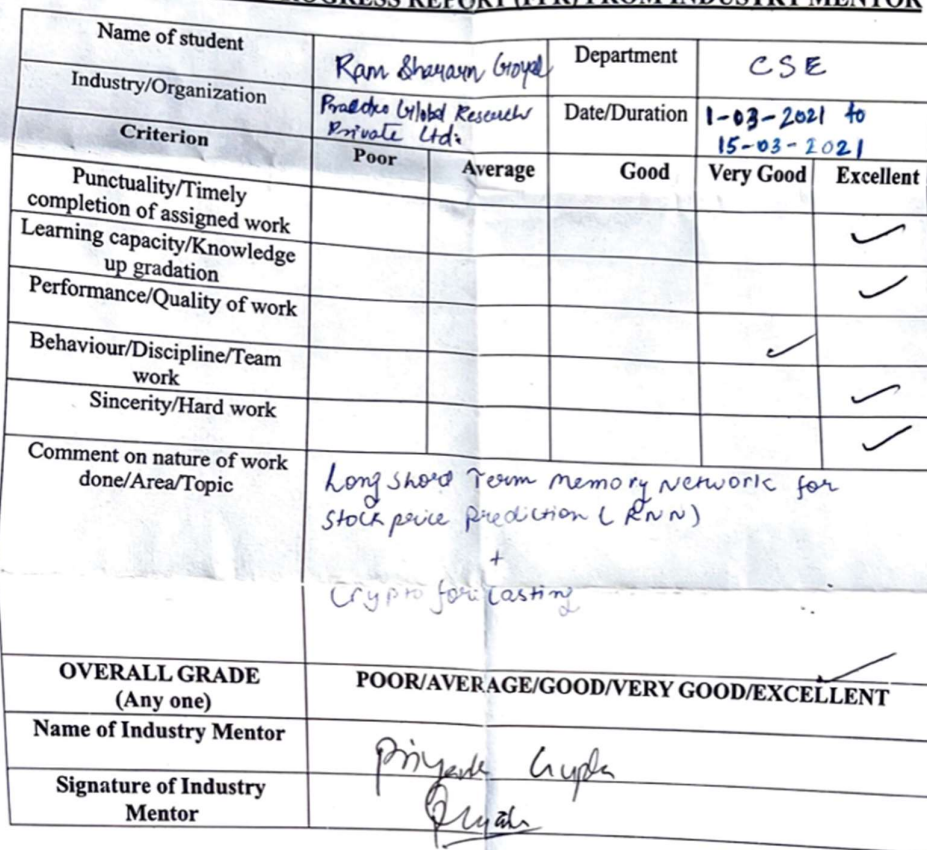 PROGRESS REPORT (FPR) FROM INDUSTRY MENTOR
Name of student
Ram Sharan Goyal
Department
CSE
Industry/Organization
Global Research
Private Ltd.
Date/Duration
1-03-2021 to
15-03-2021
Criterion
Poor
Average
Good
Very Good
Excellent
Punctuality/Timely
completion of assigned work
✓
Learning capacity/Knowledge
up gradation
✓
Performance/Quality of work
✓
Behaviour/Discipline/Team
work
✓
Sincerity/Hard work
✓
Comment on nature of work
done/Area/Topic
Long Short Term Memory Network for
Stock price prediction (RNN)
+
Crypto forecasting
OVERALL GRADE
(Any one)
POOR/AVERAGE/GOOD/VERY GOOD/EXCELLENT
✓
Name of Industry Mentor
Gupta
Signature of Industry
Mentor